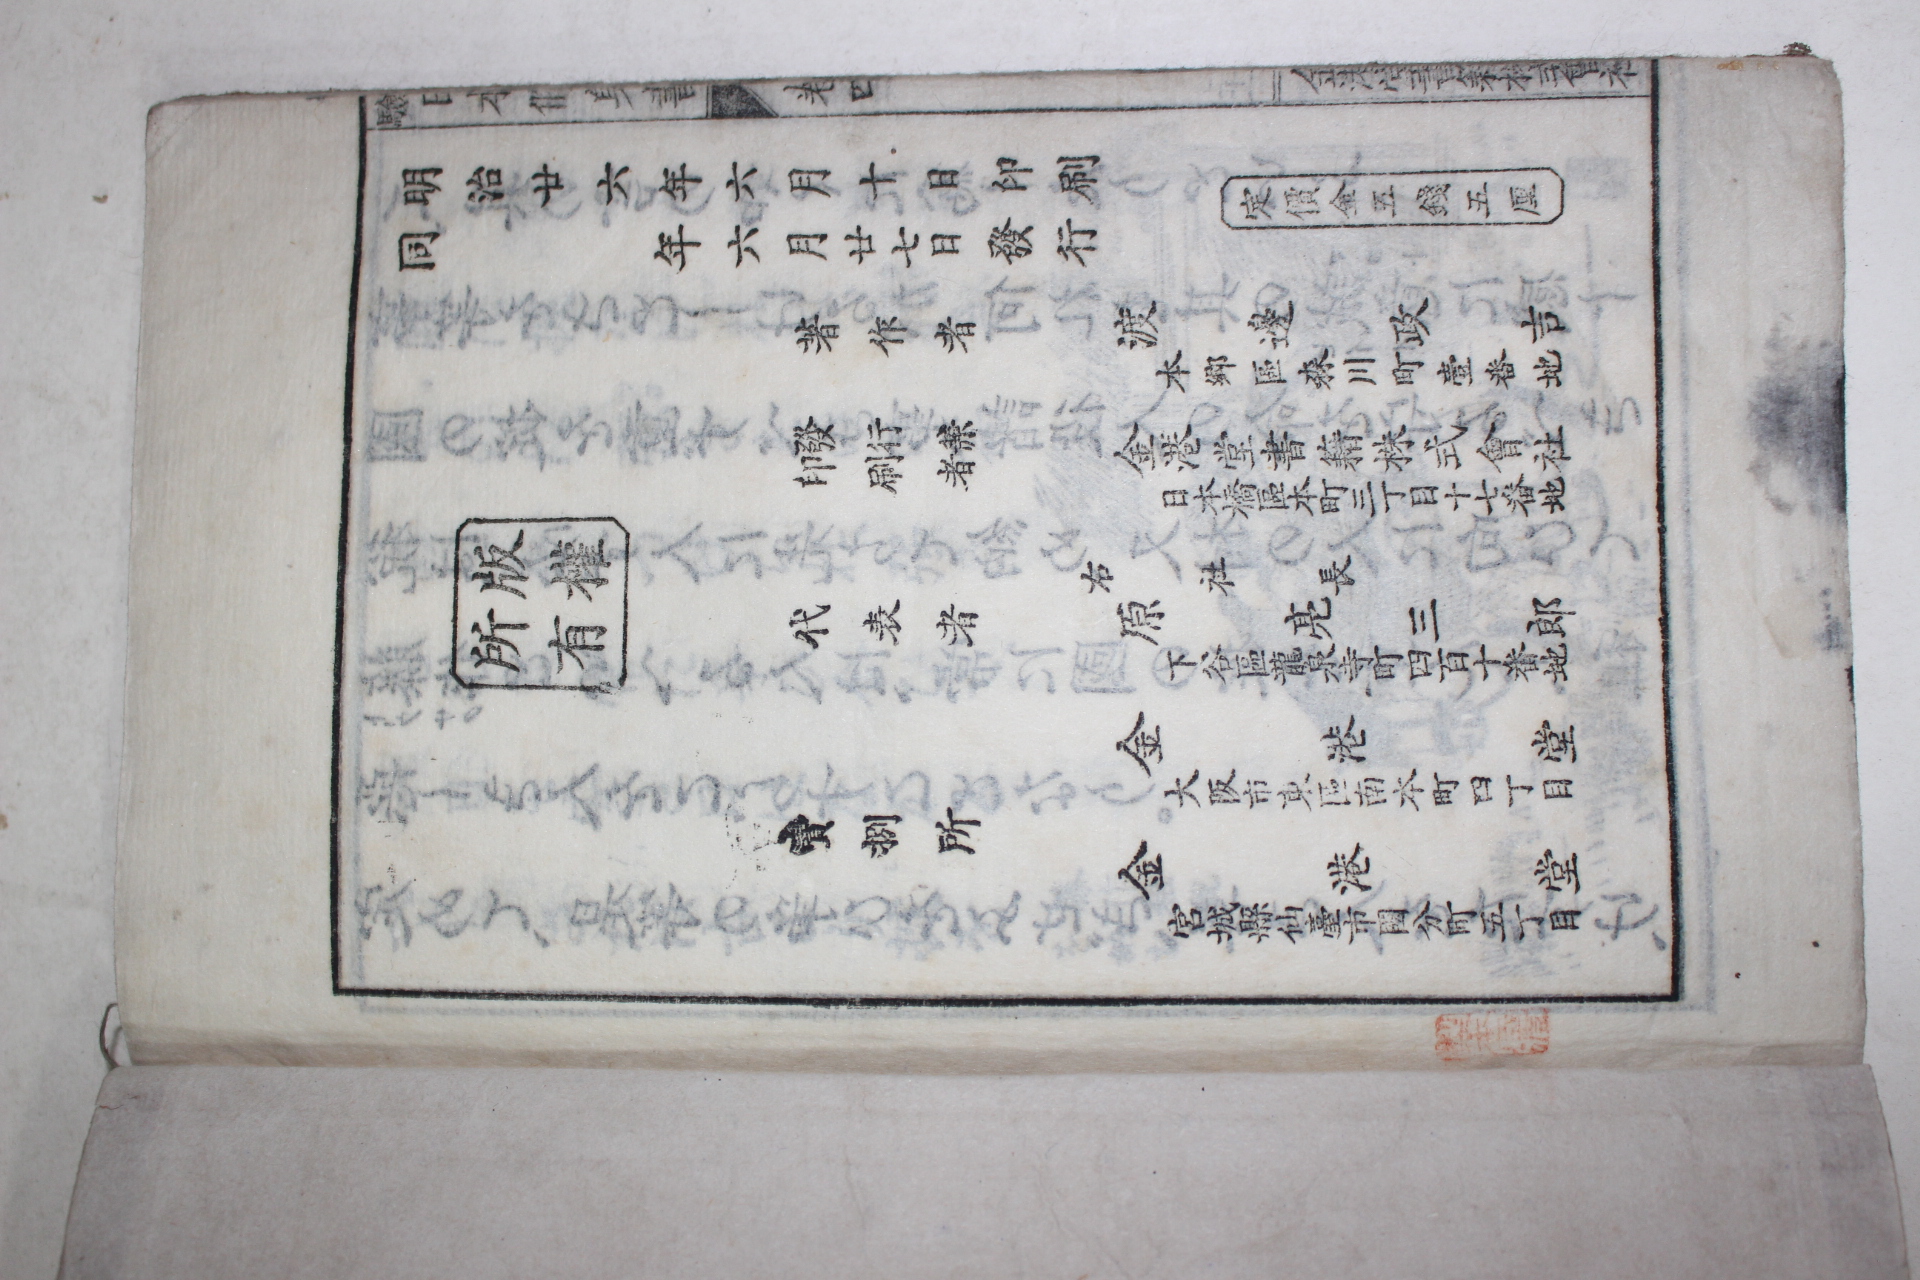 明治廿六年六月十日印刷
同年六月廿七日發行
定價金五錢五厘
著作者
渡邊政吉
本鄉區森川町壹番地
發行兼
印刷者
金港堂書籍株式會社
日本橋區本町三丁目十七番地
版權
所有
代表者
右社長
原亮三郎
下谷區龍泉寺町四百十番地
賣捌所
金港堂
大阪市東區南本町四丁目
金港堂
宮城縣仙臺市國分町五丁目
卷四